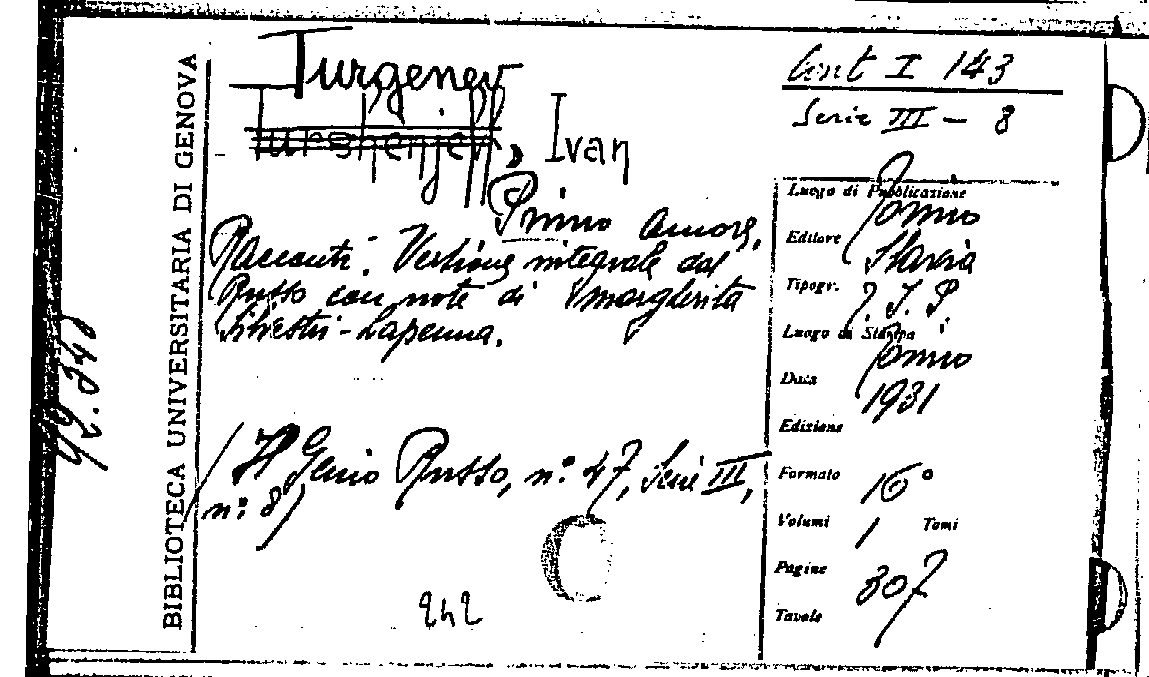 BIBLIOTECA UNIVERSITARIA DI GENOVA
Turgenev
Turshenjeff, Ivan
Primo amore,
Racconti. Versione integrale dal
Russo con note di Margherita
Silvestri-Lapenna.
/ Il Genio Russo, n.º 47, Serie III,
n.º 8/
242
Cont I 143
Serie III - 8
Luogo di Pubblicazione Torino
Editore Slavia
Tipogr. S.
Luogo di Stampa Torino
Data 1931
Edizione
Formato 16º
Volumi 1 Tomi
Pagine 307
Tavole